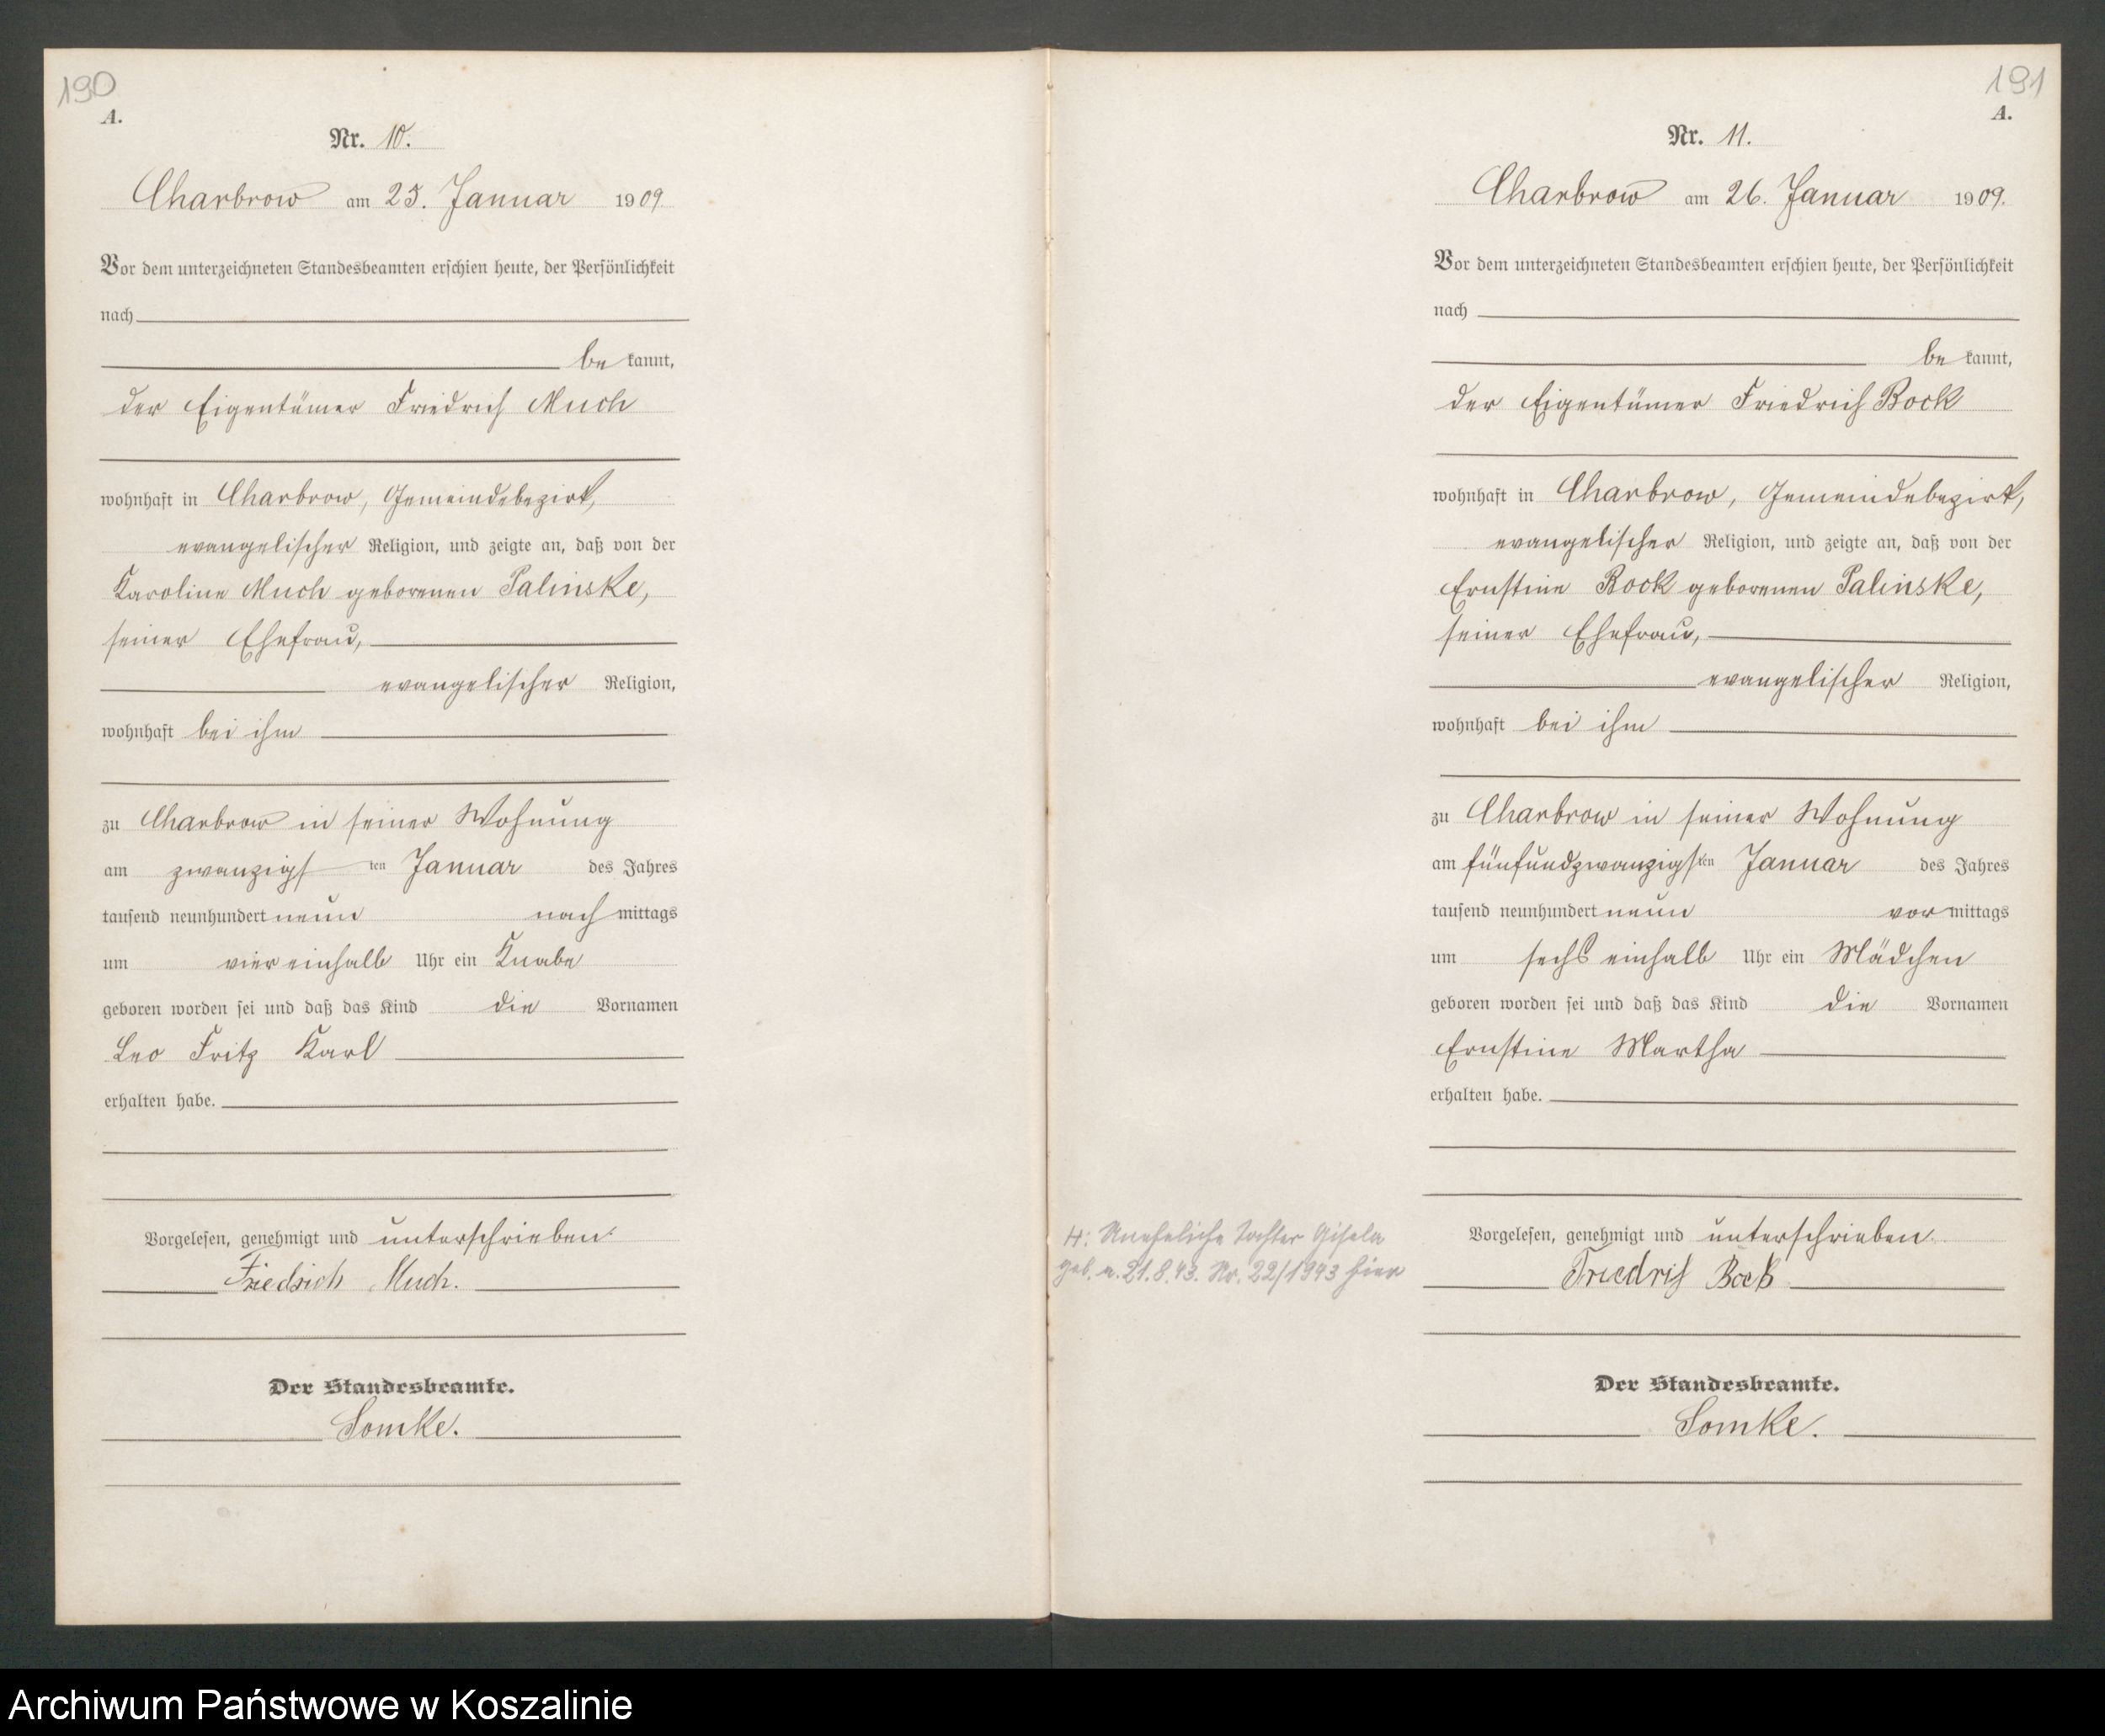 190
A.
Nr. 10.
Charbrow am 25. Januar 1909.
Vor dem unterzeichneten Standesbeamten erschien heute, der Persönlichkeit
nach
be kannt,
der Eigentümer Friedrich Much
wohnhaft in Charbrow, Gemeindebezirk,
evangelischer Religion, und zeigte an, daß von der
Karoline Much geborenen Palinske,
seiner Ehefrau,
evangelischer Religion,
wohnhaft bei ihm
zu Charbrow in seiner Wohnung
am zwanzigsten Januar des Jahres
tausend neunhundert neun nach mittags
um vier einhalb Uhr ein Knabe
geboren worden sei und daß das Kind die Vornamen
Leo Fritz Karl
erhalten habe.
Vorgelesen, genehmigt und unterschrieben.
Friedrich Much.
Der Standesbeamte.
Somke.
191
A.
Nr. 11.
Charbrow am 26. Januar 1909.
Vor dem unterzeichneten Standesbeamten erschien heute, der Persönlichkeit
nach
be kannt,
der Eigentümer Friedrich Bock
wohnhaft in Charbrow, Gemeindebezirk,
evangelischer Religion, und zeigte an, daß von der
Ernstine Bock geborenen Palinske,
seiner Ehefrau,
evangelischer Religion,
wohnhaft bei ihm
zu Charbrow in seiner Wohnung
am fünfundzwanzigsten Januar des Jahres
tausend neunhundert neun vor mittags
um sechs einhalb Uhr ein Mädchen
geboren worden sei und daß das Kind die Vornamen
Ernstine Martha
erhalten habe.
H: Uneheliche Tochter Gisela
geb. a. 21.8.43. Nr. 22/1943 hier
Vorgelesen, genehmigt und unterschrieben.
Friedrich Bock
Der Standesbeamte.
Somke.
Archiwum Państwowe w Koszalinie